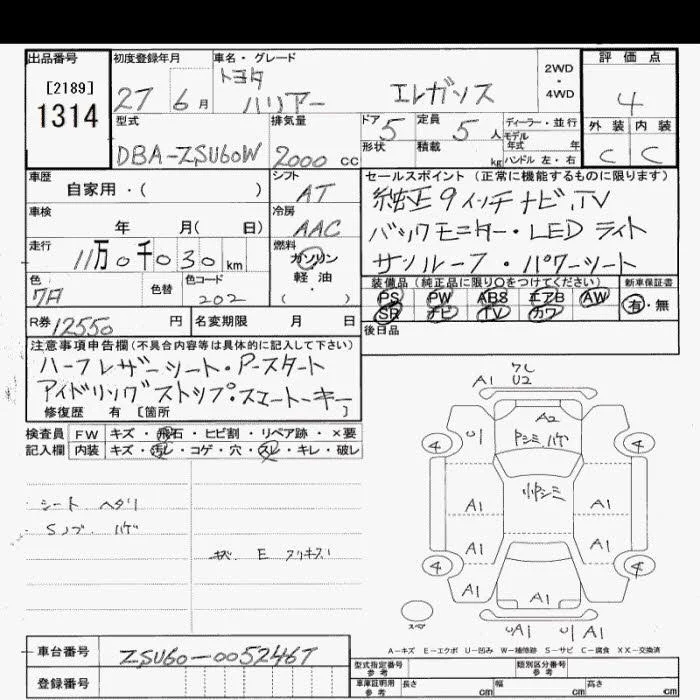 出品番号
[2189]
1314
初度登録年月
27 6月
車名・グレード
トヨタ
ハリアー エレガンス
2WD
4WD
評価点
4
型式
DBA-ZSU60W
排気量
2000 cc
ドア 5
形状
定員 5 人
積載 kg
ディーラー・並行
モデル
年式 年
ハンドル 左・右
外装 内装
C C
車歴
自家用・( )
シフト
AT
車検
年 月( 日)
冷房
AAC
走行
11万0千030km
燃料
ガソリン
軽油
( )
色
色替
色コード
202
R券 12550 円
名変期限 月 日
セールスポイント(正常に機能するものに限ります)
純正9インチナビ.TV
バックモニター・LEDライト
サンルーフ・パワーシート
装備品(純正品に限り○をつけてください)
PS PW ABS エアB AW
SR ナビ TV カワ
新車保証書
有・無
後日品
注意事項申告欄(不具合内容等は具体的に記入して下さい)
ハーフレザーシート・Pースタート
アイドリングストップ・スマートキー
修復歴 有 [箇所 ]
検査員
記入欄
FW キズ・飛石・ヒビ割・リペア跡・×要
内装 キズ・汚レ・コゲ・穴・スレ・キレ・破レ
シート ヘタリ
Sノブ. ハゲ
キズ E スリキズ!
A1 U2
A2
U1
4 4
A1 A1
A1 A1
4 4
A1 A1 A1
スペア
UA1 U A1
A-キズ E-エクボ U-凹み W-補修跡 S-サビ C-腐食 XX-交換済
車台番号
ZSU60-0052467
登録番号
型式指定番号
参考
類別区分番号
参考
車庫証明用
参考
長さ cm
幅 cm
高さ cm